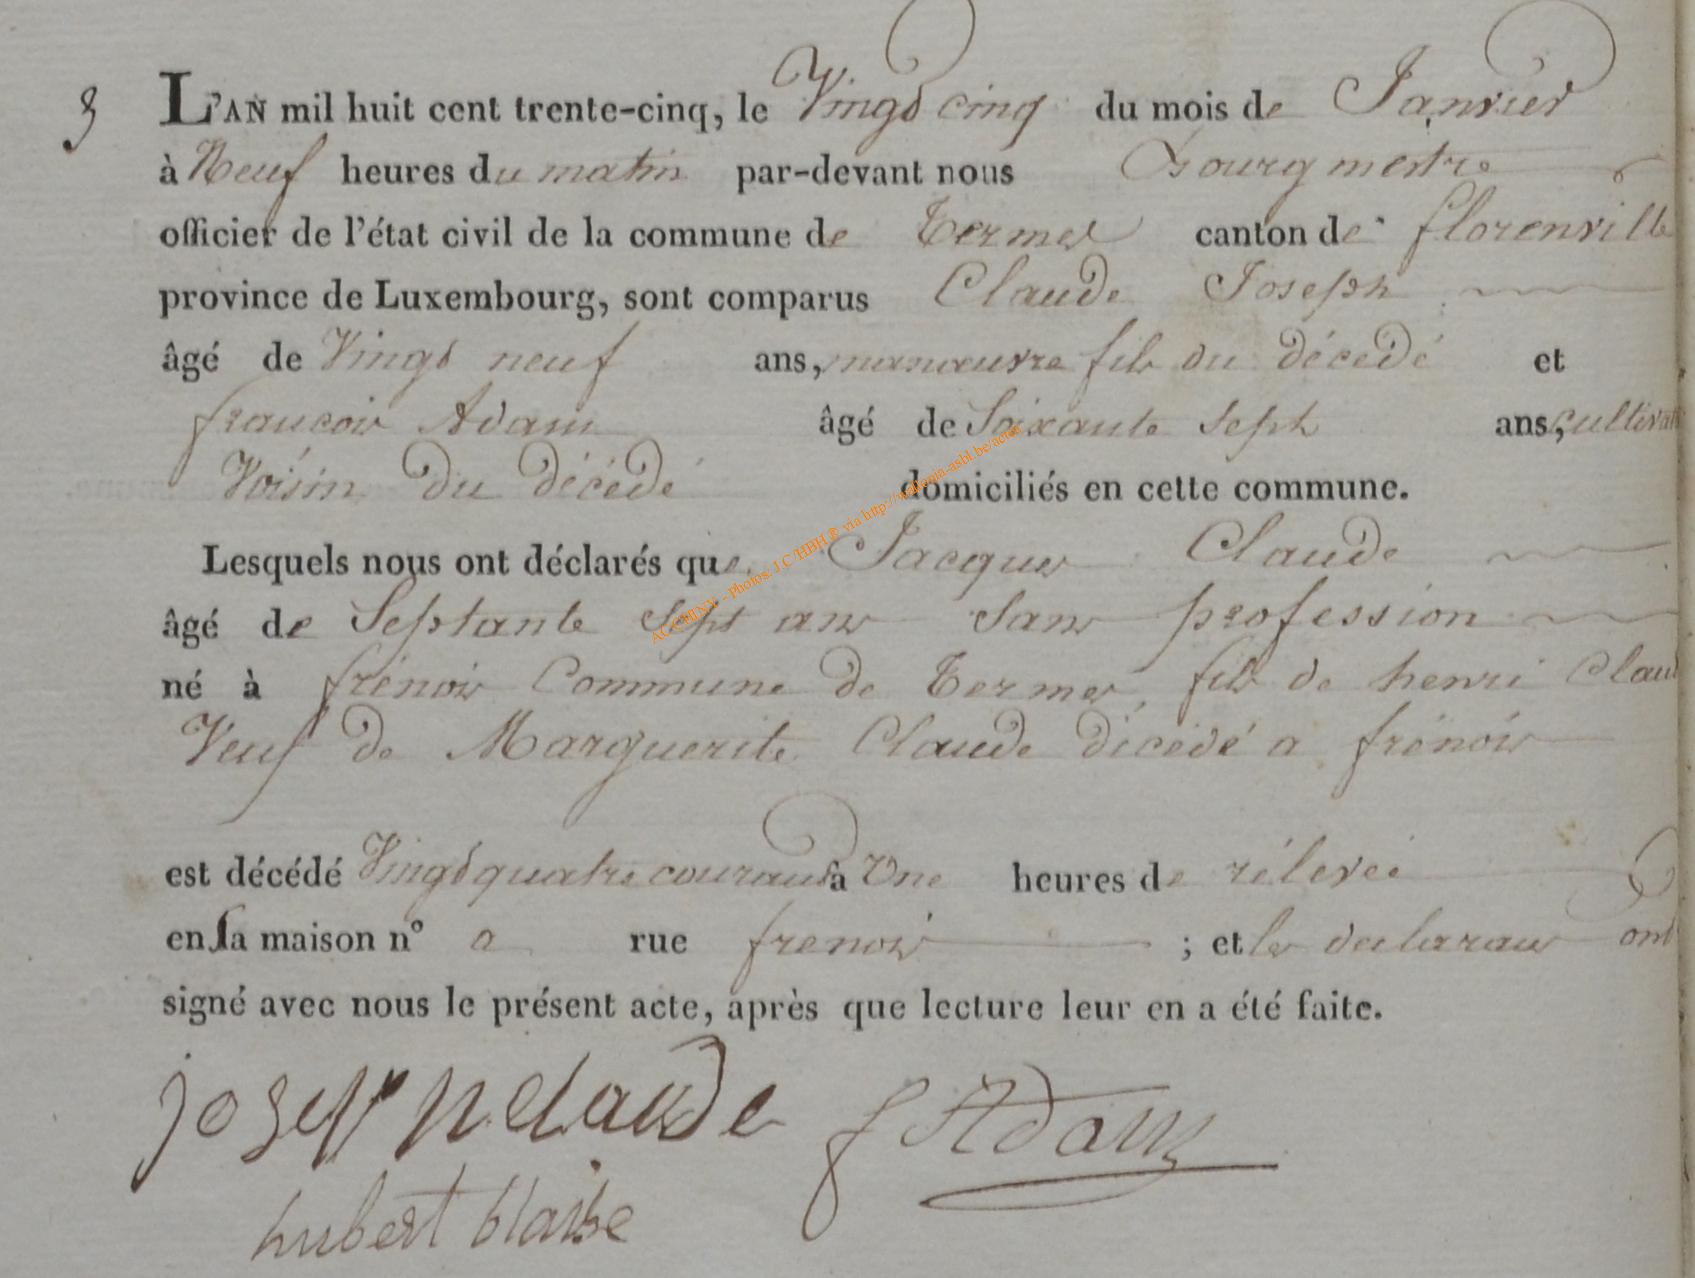 3
L'AN mil huit cent trente-cinq, le Vingt cinq du mois de Janvier
à Neuf heures du matin par-devant nous Bourgmestre
officier de l'état civil de la commune de Termes canton de florenville
province de Luxembourg, sont comparus Claude Joseph
âgé de Vingt neuf ans, manœuvre fils du décédé et
francois Adam âgé de Soixante Sept ans, cultivat
Voisin du décédé domiciliés en cette commune.
Lesquels nous ont déclarés que Jacques Claude
âgé de Septante Sept ans Sans profession
né à frénois Commune de Termes, fils de henri Claud
Veuf de Marguerite Claude décédé a frénois
est décédé Vingt quatre courant à Une heures de rélevée
en sa maison n° a rue frenois ; et les declarans ont
signé avec nous le présent acte, après que lecture leur en a été faite.
joseph claude f Adam
hubert blaise
ACCHINY - Photos: J.C HBH ® via http://wallonia-asbl.be/actes